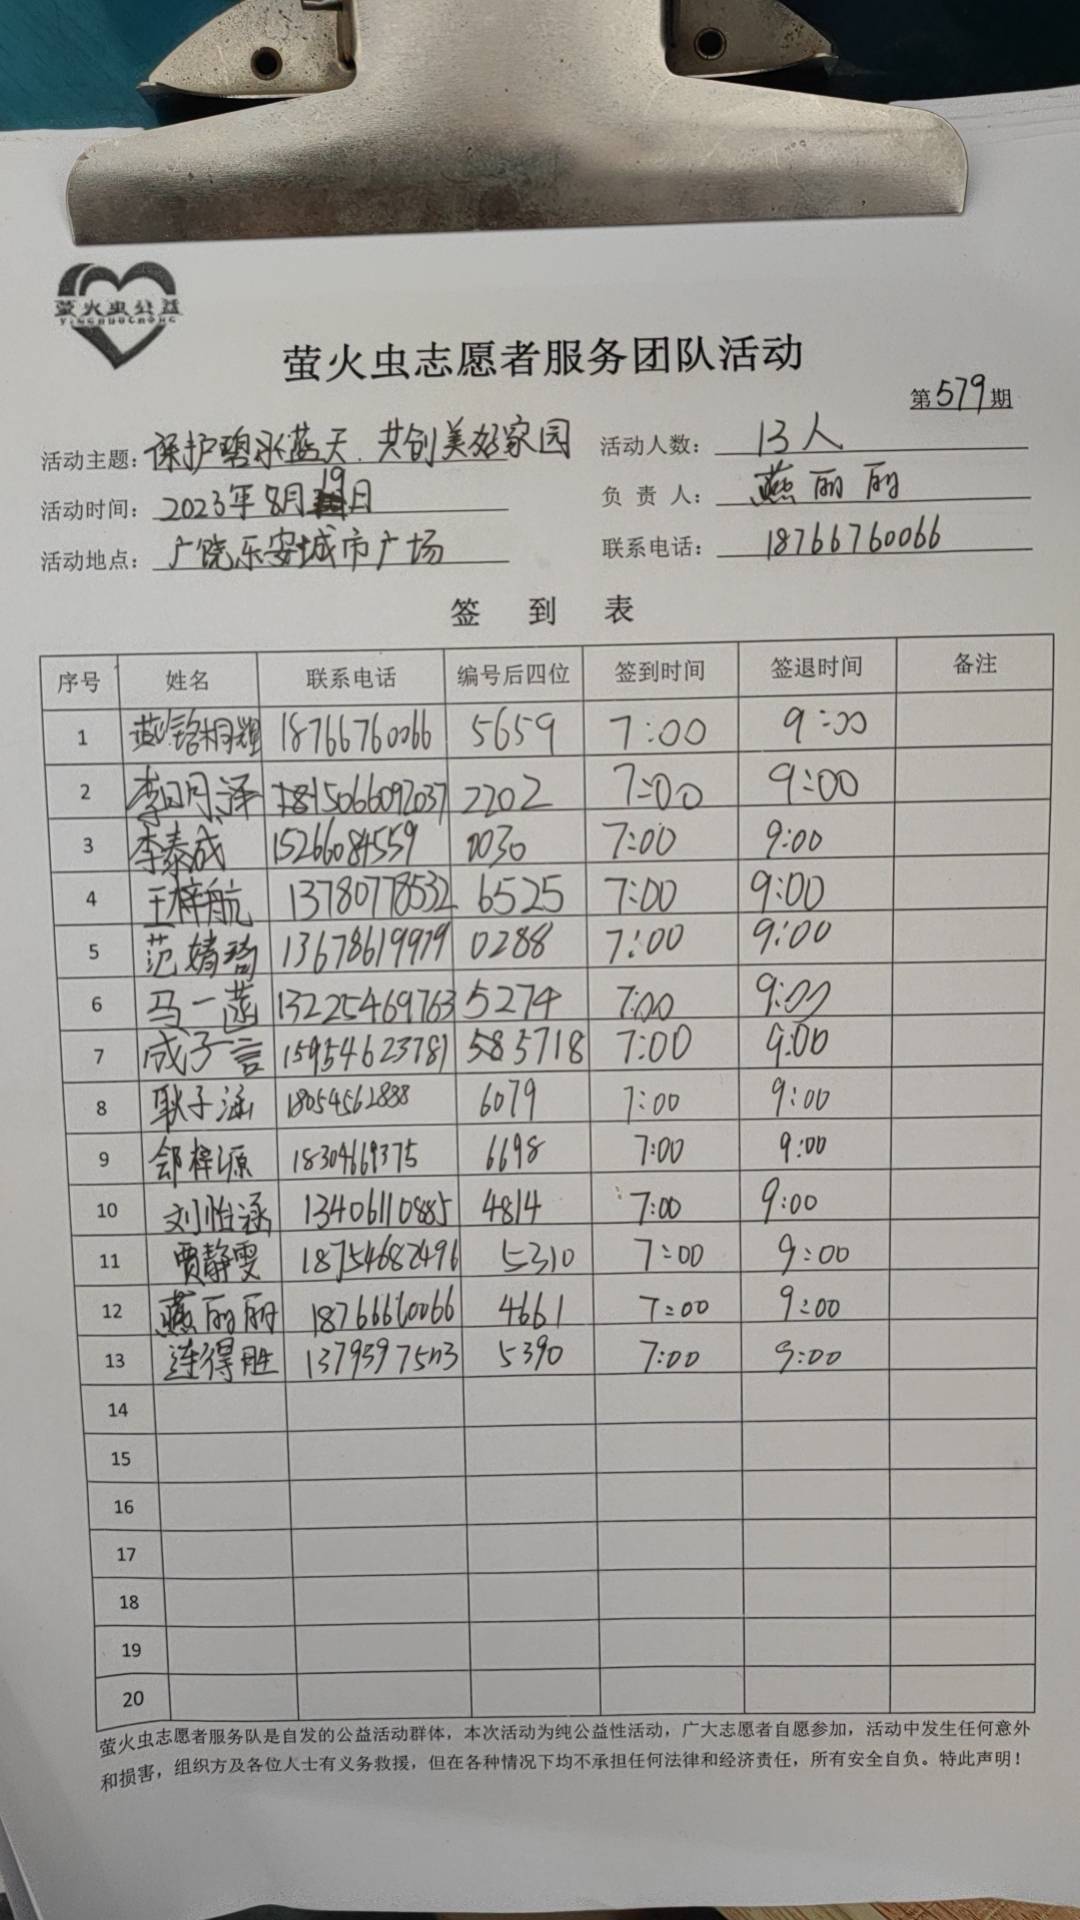 萤火虫公益
YINGHUOCHONG
萤火虫志愿者服务团队活动
第579期
活动主题：保护碧水蓝天.共创美好家园 活动人数：13人
活动时间：2023年8月19日 负责人：燕丽丽
活动地点：广饶乐安城市广场 联系电话：18766760066
签到表
序号 姓名 联系电话 编号后四位 签到时间 签退时间 备注
1 18766760066 5659 7:00 9:00
2 李明泽 15066092037 2202 7:00 9:00
3 李泰成 15266084559 0030 7:00 9:00
4 王梓航 13780778532 6525 7:00 9:00
5 范婧琦 13678619979 0288 7:00 9:00
6 马一菡 13225469763 5274 7:00 9:00
7 成子言 15954623781 585718 7:00 9:00
8 耿子涵 18054562888 6079 7:00 9:00
9 郐梓源 18304669375 6698 7:00 9:00
10 刘怡涵 13406110885 4814 7:00 9:00
11 贾静雯 18754682496 5310 7:00 9:00
12 燕丽丽 18766660066 4661 7:00 9:00
13 连得胜 5390 7:00 9:00
14
15
16
17
18
19
20
萤火虫志愿者服务队是自发的公益活动群体，本次活动为纯公益性活动，广大志愿者自愿参加，活动中发生任何意外
和损害，组织方及各位人士有义务救援，但在各种情况下均不承担任何法律和经济责任，所有安全自负。特此声明！